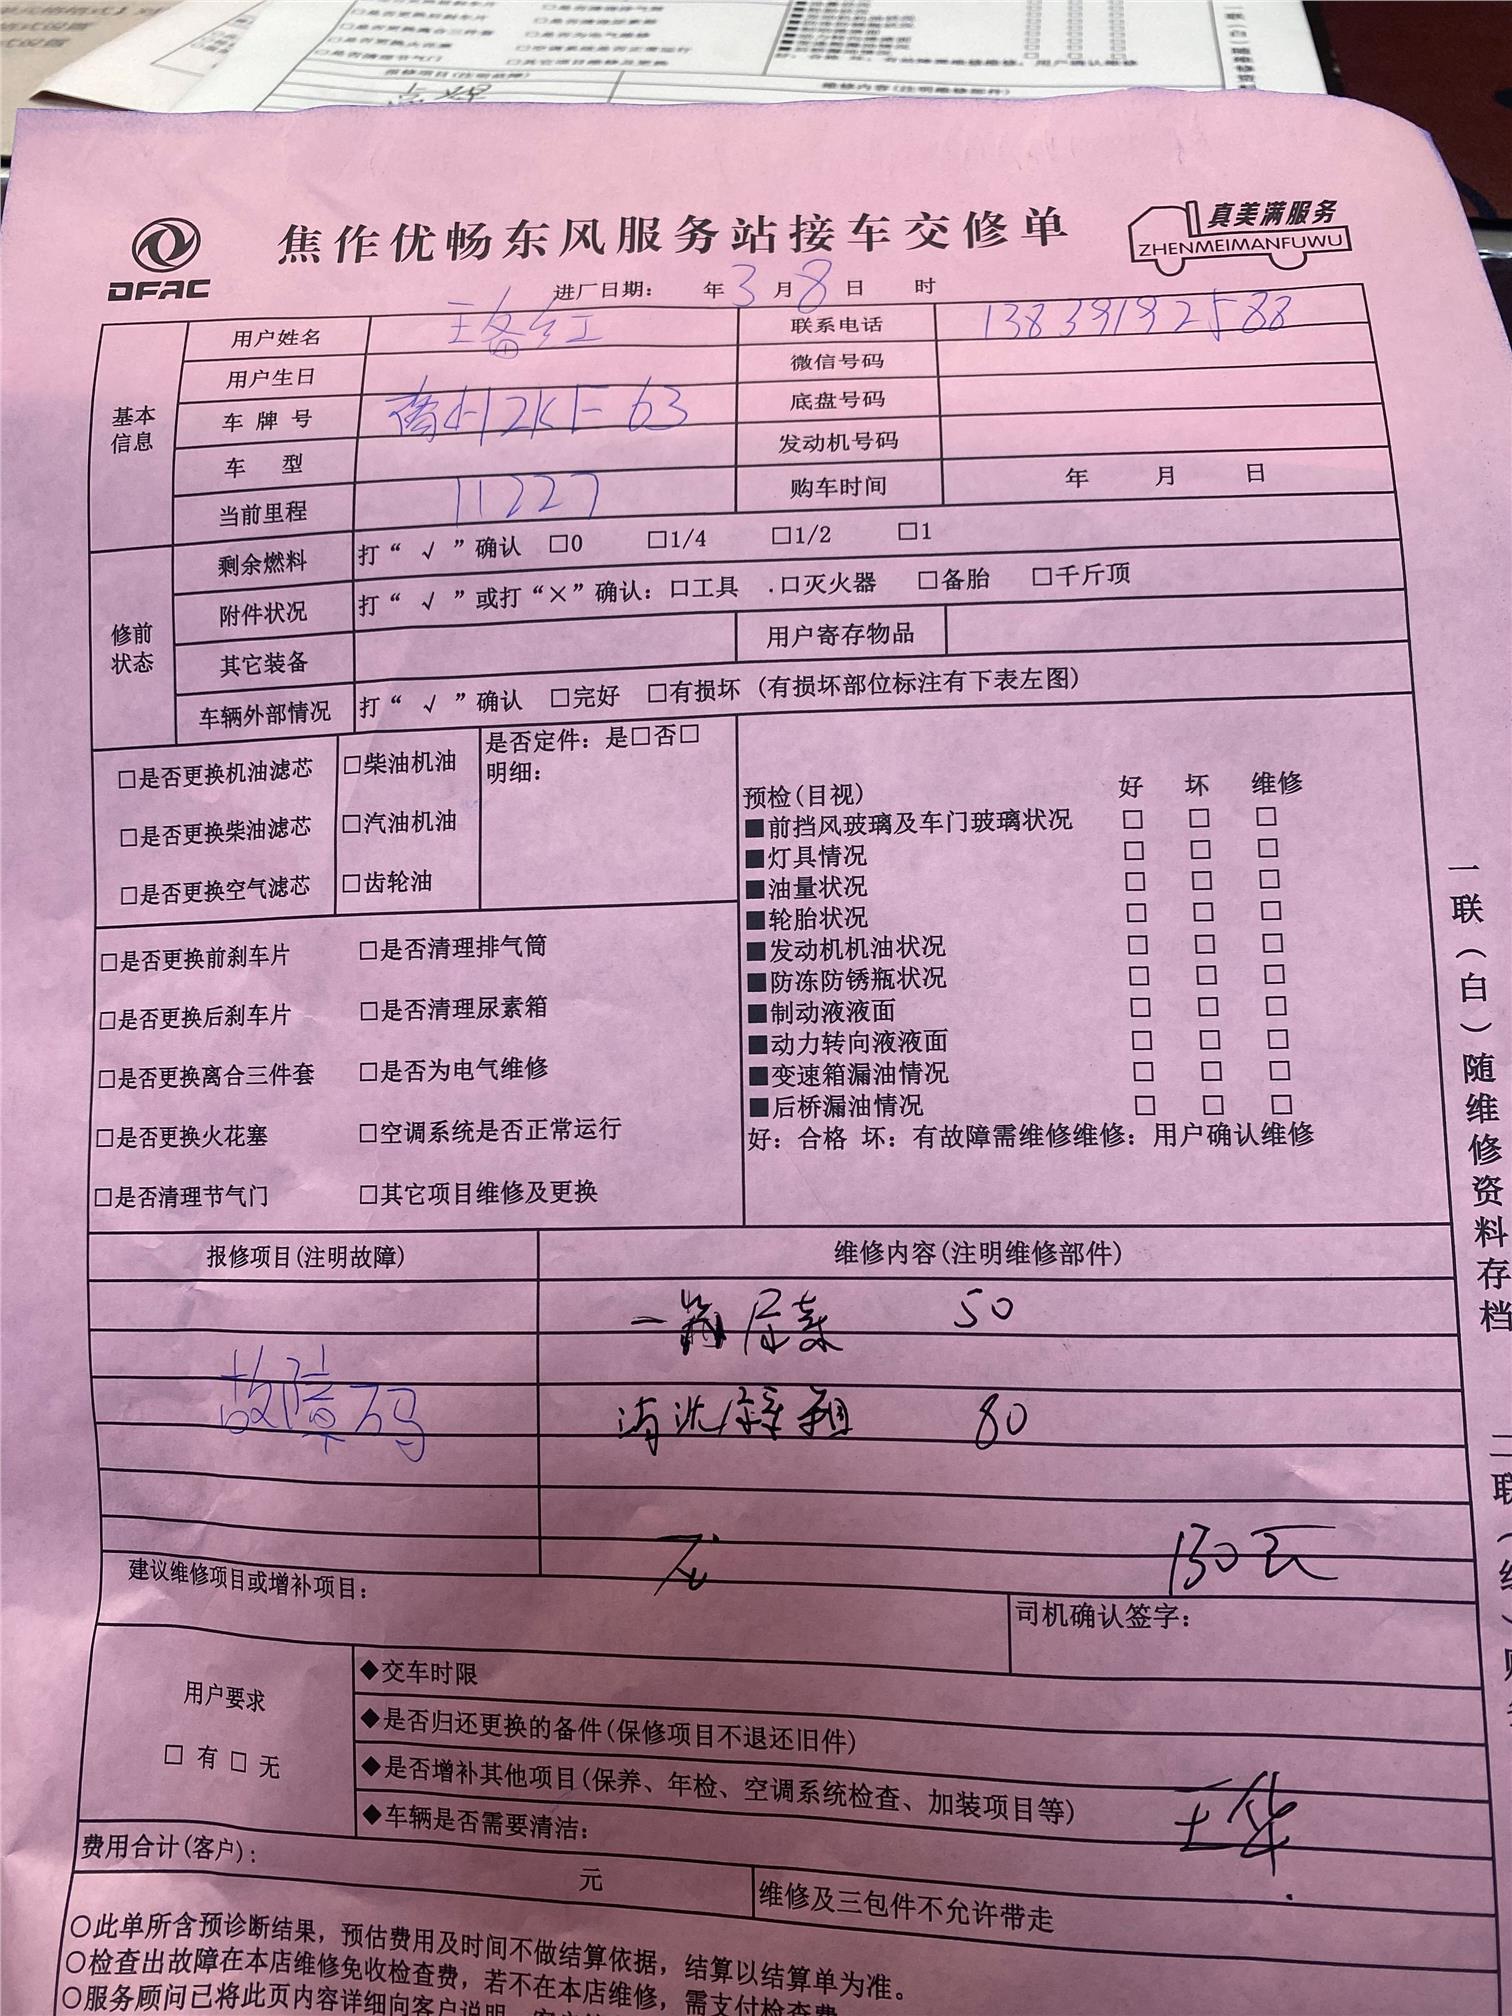 是否更换后刹车片
是否更换离合三件套 □是否为电气维修
□是否更换火花塞 □空调系统是否正常运行
□是否清理节气门 □其它项目维修及更换
报修项目(注明故障) 维修内容(注明维修部件)
DFAC 焦作优畅东风服务站接车交修单 真美满服务
ZHENMEIMANFUWU
进厂日期: 年3月8日 时
基本信息
用户姓名 联系电话 13839192588
用户生日 微信号码
车牌号 2KF63 底盘号码
车型 发动机号码
当前里程 11227 购车时间 年 月 日
修前状态
剩余燃料 打“√”确认 □0 □1/4 □1/2 □1
附件状况 打“√”或打“×”确认: □工具 .□灭火器 □备胎 □千斤顶
其它装备 用户寄存物品
车辆外部情况 打“√”确认 □完好 □有损坏 (有损坏部位标注有下表左图)
□是否更换机油滤芯 □柴油机油 是否定件: 是□否□
明细:
□是否更换柴油滤芯 □汽油机油
□是否更换空气滤芯 □齿轮油
□是否更换前刹车片 □是否清理排气筒
□是否更换后刹车片 □是否清理尿素箱
□是否更换离合三件套 □是否为电气维修
□是否更换火花塞 □空调系统是否正常运行
□是否清理节气门 □其它项目维修及更换
预检(目视) 好 坏 维修
■前挡风玻璃及车门玻璃状况 □ □ □
■灯具情况 □ □ □
■油量状况 □ □ □
■轮胎状况 □ □ □
■发动机机油状况 □ □ □
■防冻防锈瓶状况 □ □ □
■制动液液面 □ □ □
■动力转向液液面 □ □ □
■变速箱漏油情况 □ □ □
■后桥漏油情况 □ □ □
好: 合格 坏: 有故障需维修维修: 用户确认维修
报修项目(注明故障) 维修内容(注明维修部件)
一箱尿素 50
故障码
清洗尿素 80
130元
建议维修项目或增补项目:
司机确认签字:
用户要求
□ 有 □ 无
◆交车时限
◆是否归还更换的备件(保修项目不退还旧件)
◆是否增补其他项目(保养、年检、空调系统检查、加装项目等)
◆车辆是否需要清洁:
王华
费用合计(客户): 元 维修及三包件不允许带走
○此单所含预诊断结果，预估费用及时间不做结算依据，结算以结算单为准。
○检查出故障在本店维修免收检查费，若不在本店维修，需支付检查费
○服务顾问已将此页内容详细向客户说明
一联(白)随维修资料存档
二联